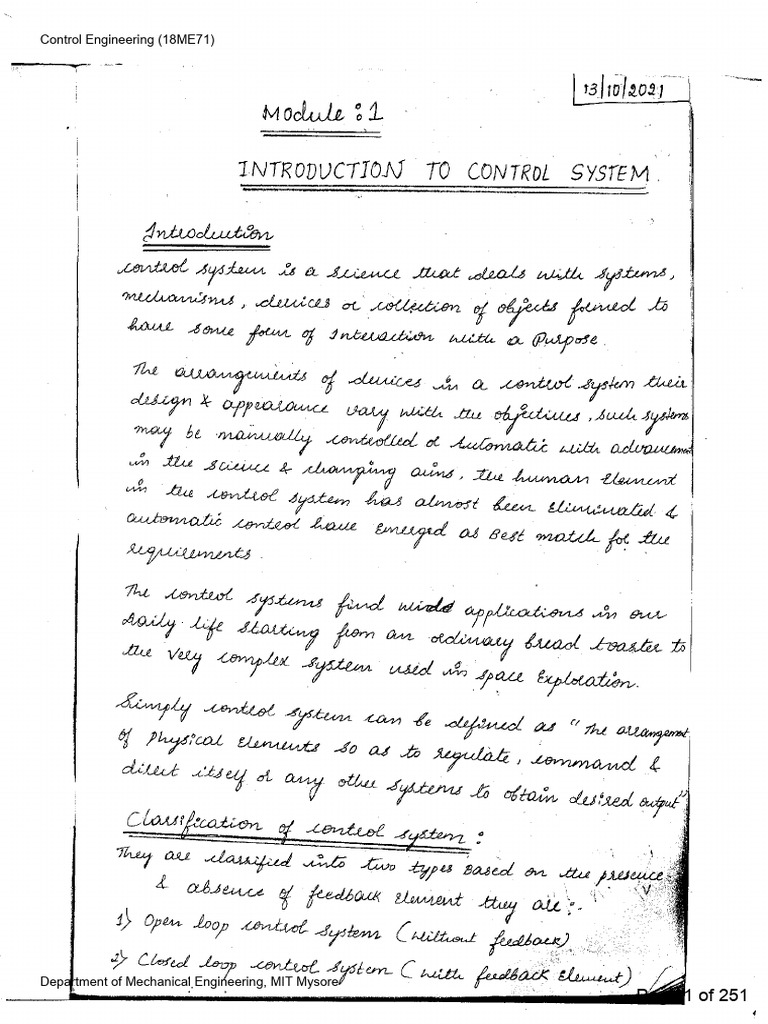 Control Engineering (18ME71)
13/10/2021
Module : 1
INTRODUCTION TO CONTROL SYSTEM.
Introduction
control system is a science that deals with systems,
mechanisms, devices or collection of objects formed to
have some form of Interaction with a Purpose.
The arrangements of devices in a control system their
design & appearance vary with the objectives, such systems
may be manually controlled or Automatic with advancement
in the science & changing aims, the human Element
in the control system has almost been Eliminated &
automatic control have Emerged as Best match for the
requirements.
The control systems find wide applications in our
Daily life starting from an ordinary bread toaster to
the very complex system used in space Exploration.
Simply control system can be defined as "The arrangement
of Physical Elements so as to regulate, command &
direct itself or any other systems to obtain desired output"
Classification of control system :
They are classified into two types Based on the presence
& absence of feedback Element they are :-
1) Open loop control system (without feedback)
2) Closed loop control system (with feedback Element)
Department of Mechanical Engineering, MIT Mysore
1 of 251